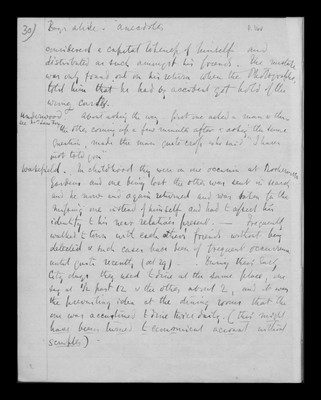 30) Boys alike - anecdotes
considered a capital likeness of himself and
distributed as such amongst his friends. The mistake
was only found out on his return when the Photographer
told him that he had by accident got hold of the
wrong carte.
Underwood about asking the way, first one asked a man & then
the other coming up a few minutes after & asking the same
question, made the man quite cross who said "I have
just told you"
Wakefield. In childhood they were on one occasion at
Gardens and one being lost the other was sent in search
and he now and again returned and was taken for the
missing one instead of himself, and had to assert his
identity to his near relatives present. - Frequently
walked & town with each others friends without being
detected & such cases have been of frequent occurrence
until quite recently (at 29) - During their early
City days they used to dine at the same place, one
say at ½ past 12 & the other about 2, and it was
the prevailing idea at the dining rooms that the
one was accustomed to dine twice daily. (This might
have been turned to economical account without
scruples)